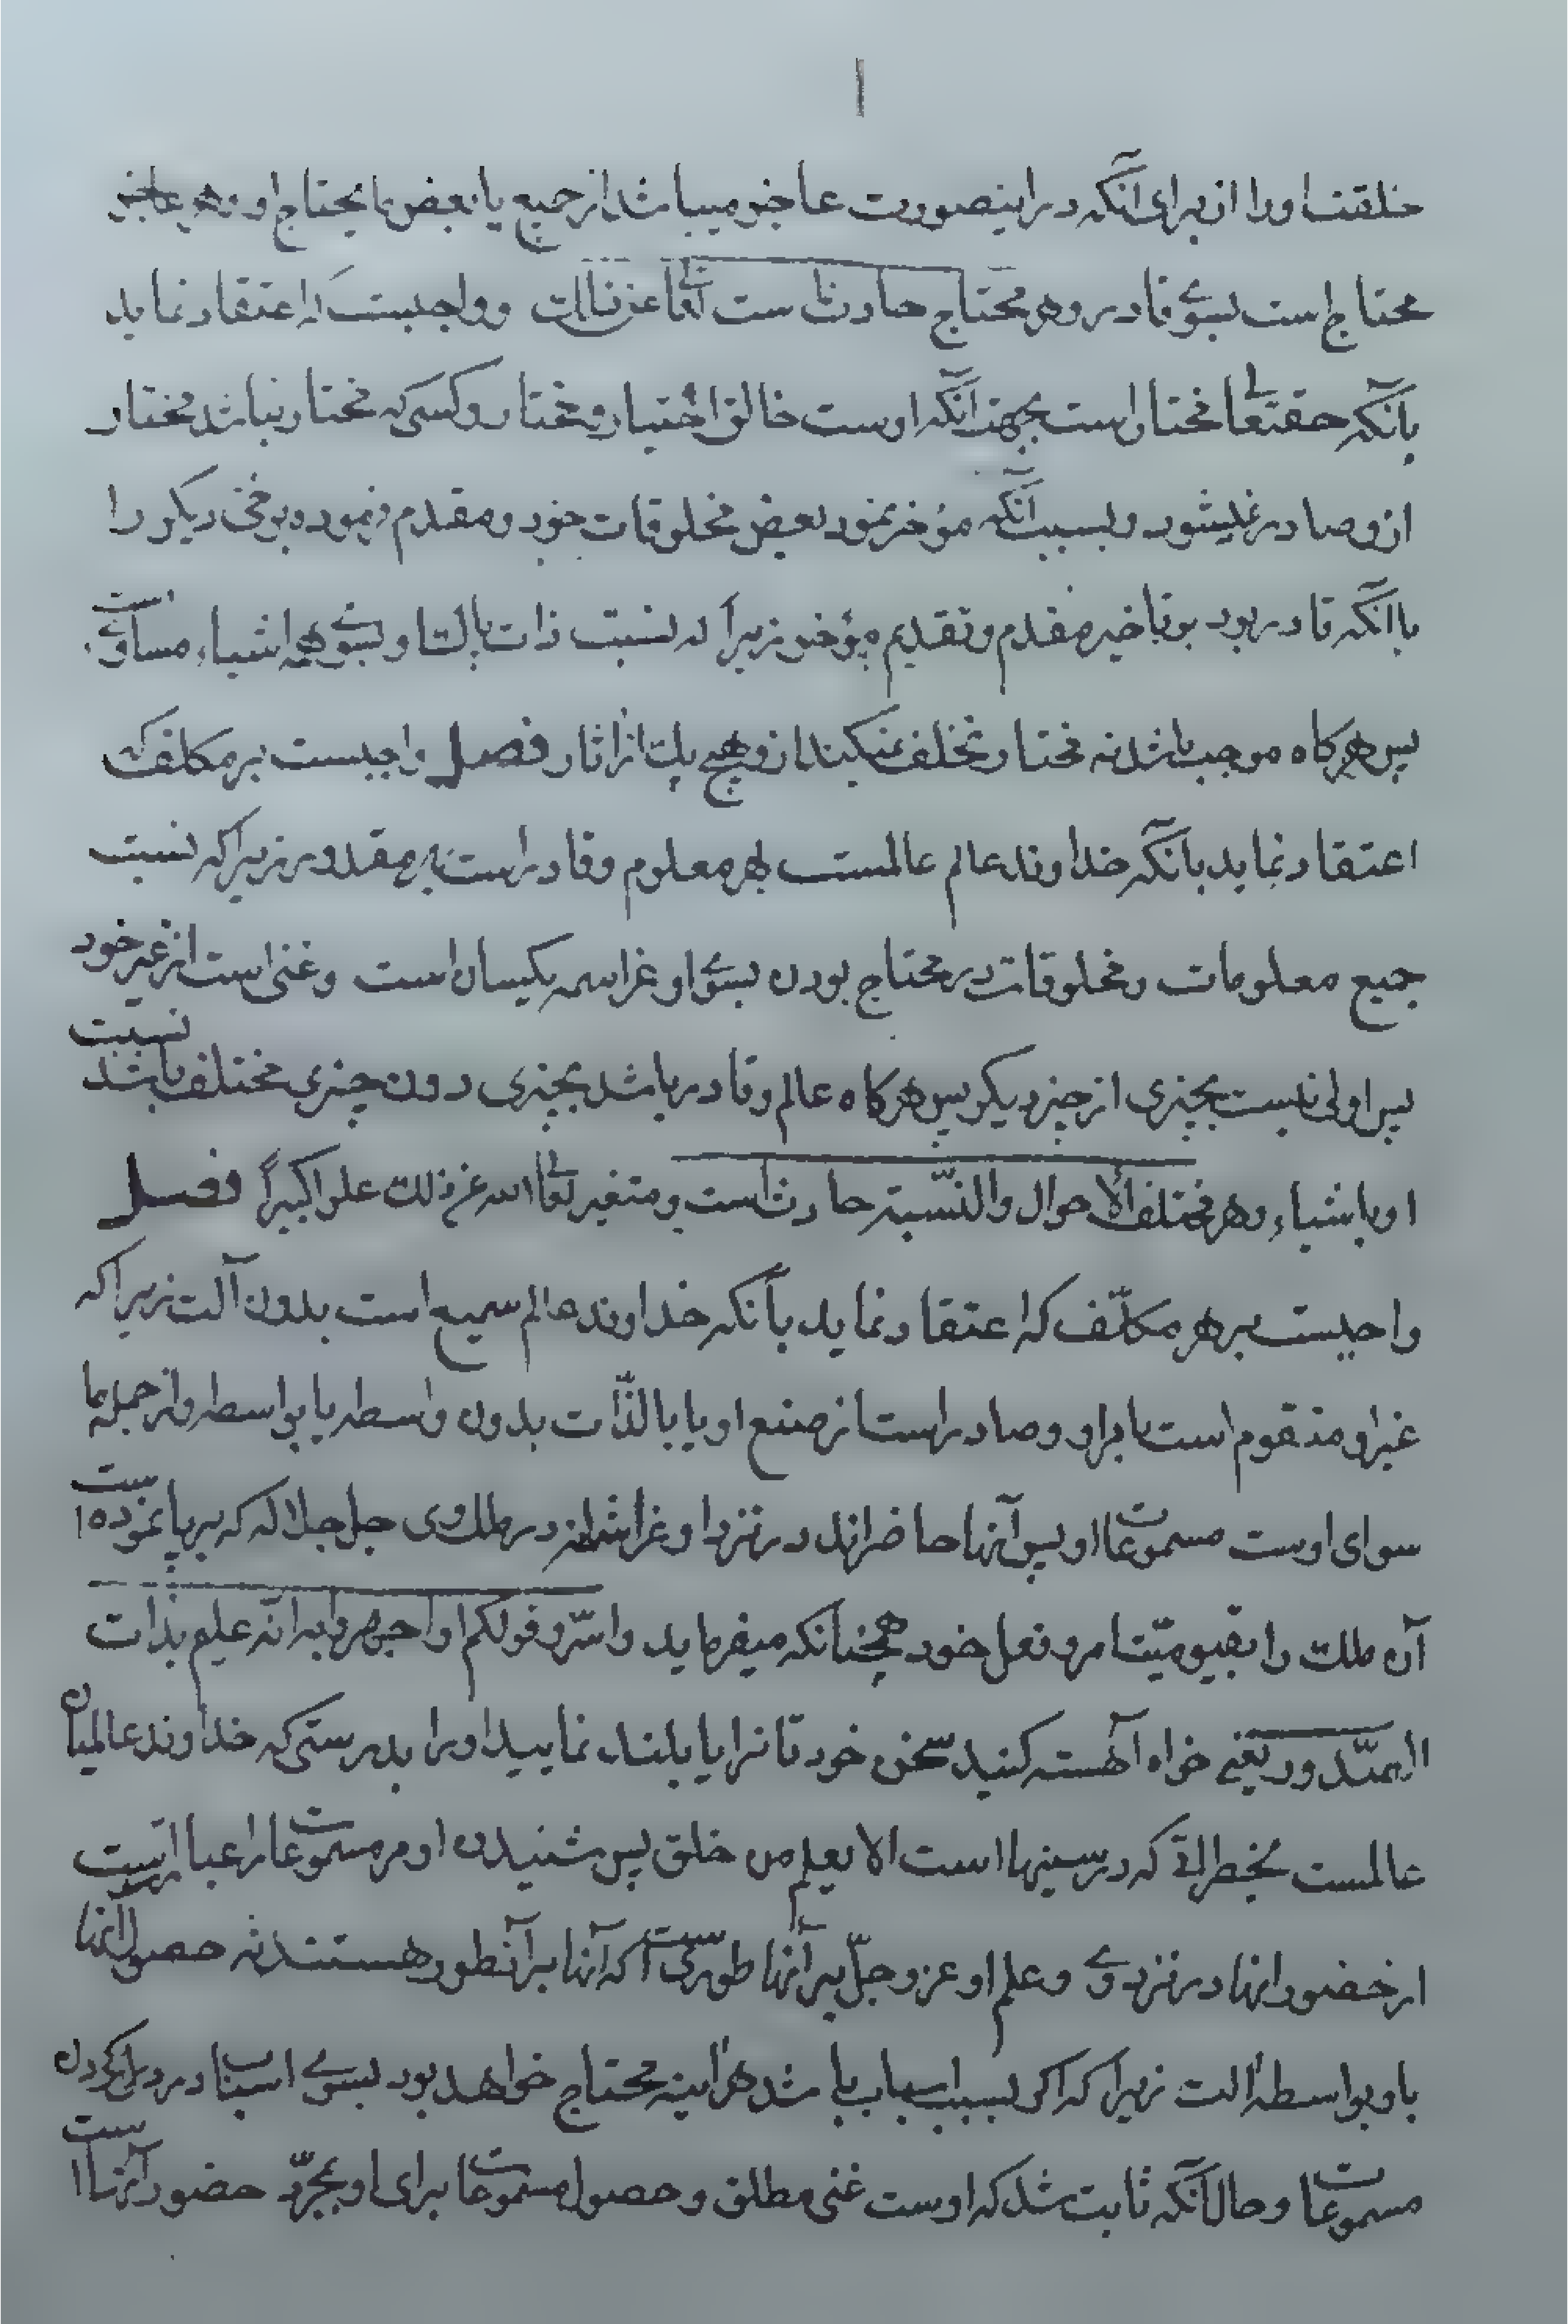 ا
خلقت او را از برای آنکه در اینصورت عاجز میباشد از جمیع یا بعض ما یحتاج او و هر عاجز
محتاج است بسوی قادر و هر محتاج حادث است تعالی عن ذالک و واجبست که اعتقاد نماید
بآنکه حقتعالی مختار است بجهت آنکه اوست خالق اختیار و مختار و کسی که مختار نباشد مختار
ازو صادر نمیشود و بسبب آنکه مؤخر نمود بعض مخلوقات خود و مقدم فرموده برخی دیکر را
با آنکه قادر بود بر تاخیر مقدم و تقدیم مؤخر زیرا که نسبت ذات پاک او بسوی همه اشیاء مساوی است
پس هر کاه موجب باشد نه مختار تخلف نمیکند ازو هیچ یک از اثار فصل واجبست بر مکلف که
اعتقاد نماید بآنکه خداوند عالم عالمست بهر معلوم و قادر است بهر مقدور زیرا که نسبت
جمیع معلومات و مخلوقات در محتاج بودن بسوی او عز اسمه یکسان است و غنی است از غیر خود
پس اولی نیست بچیزی از چیز دیکر پس هر کاه عالم و قادر باشد بچیزی دون چیزی مختلف باشد نسبت
او باشیاء و هر مختلف الاحوال والنّسبة حادث است و متغیر تعالی الله عن ذلک علوا کبیراً فصل
واجبست بر هر مکلّف که اعتقاد نماید بآنکه خداوند عالم سمیع است بدون آلت زیرا که
غیر او متقوم است بامر او و صادر است از صنع او یا بالذّات بدون واسطه یا بواسطه و از جمله ما
سوای اوست مسموعات او پس آنها حاضراند در نزد او عز شانه در ملک وی جل جلاله که برپا نموده است
آن ملک را بقیومیّت امر و فعل خود همچنانکه میفرماید واسرّوا قولکم او اجهروا به انّه علیم بذات
الصّدور یعنی خواه آهسته کنید سخن خودتانرا یا بلند نمایید او را بدرستی که خداوند عالمیان
عالمست بخطراتی که در سینها است الا یعلم من خلق پس شنیدن او مر مسموعات را عبارتست
از حضور انها در نزد وی و علم او عز و جلّ بر آنها طوریست که آنها بر آنطور هستند نه حصول انها
باو بواسطهٔ الت زیرا که اکر بسبب اسباب باشد هراینه محتاج خواهد بود بسوی اسباب در درک کردن
مسموعات و حال آنکه ثابت شد که اوست غنی مطلق و حصول مسموعات برای او بمجرّد حضور آنها است